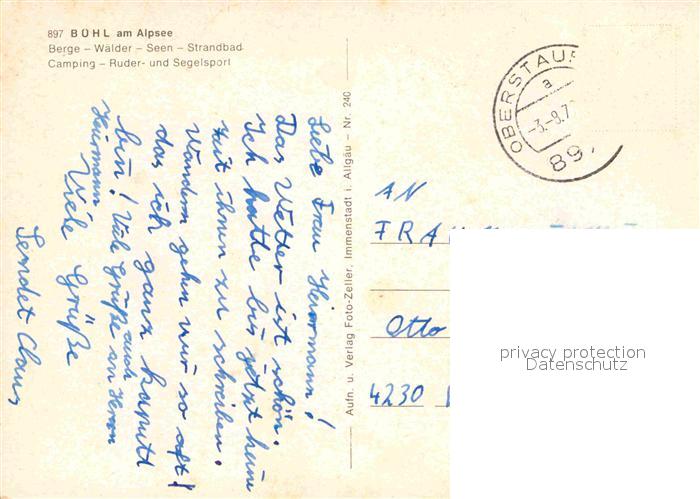 897 BÜHL am Alpsee
Berge – Wälder – Seen – Strandbad
Camping – Ruder- und Segelsport
Liebe Frau Heiermann!
Das Wetter ist schön.
Ich hatte bis jetzt keine
Zeit ihnen zu schreiben.
Wandern gehen wir so oft!
das ich ganz kaputt
bin! Viele Grüße auch an Herrn
Heiermann
Viele Grüße
Sendet Claus
Aufn. u. Verlag Foto-Zeller, Immenstadt i. Allgäu – Nr. 240
OBERSTAUF
a
-3.-8.7
897
AN
FRAU
Otto
4230
privacy protection
Datenschutz